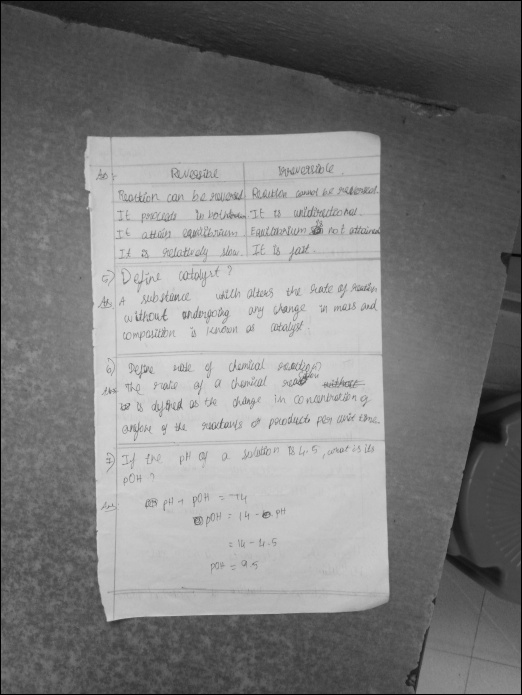 Ans:
Reversible | Irreversible
Reaction can be reversed | Reaction cannot be reversed.
It proceeds in both | It is unidirectional.
It attain equilibrium. | Equilibrium is not attained
It is relatively slow. | It is fast.
5) Define catalyst?
Ans. A substance which alters the rate of reaction
without undergoing any change in mass and
composition is known as catalyst.
6) Define rate of chemical reaction?
Ans: The rate of a chemical reaction without
is defined as the change in concentration of
anyone of the reactants or products per unit time.
7) If the pH of a solution is 4.5, what is its
pOH ?
Ans: pH + pOH = 14
pOH = 14 - pH
= 14 - 4.5
pOH = 9.5